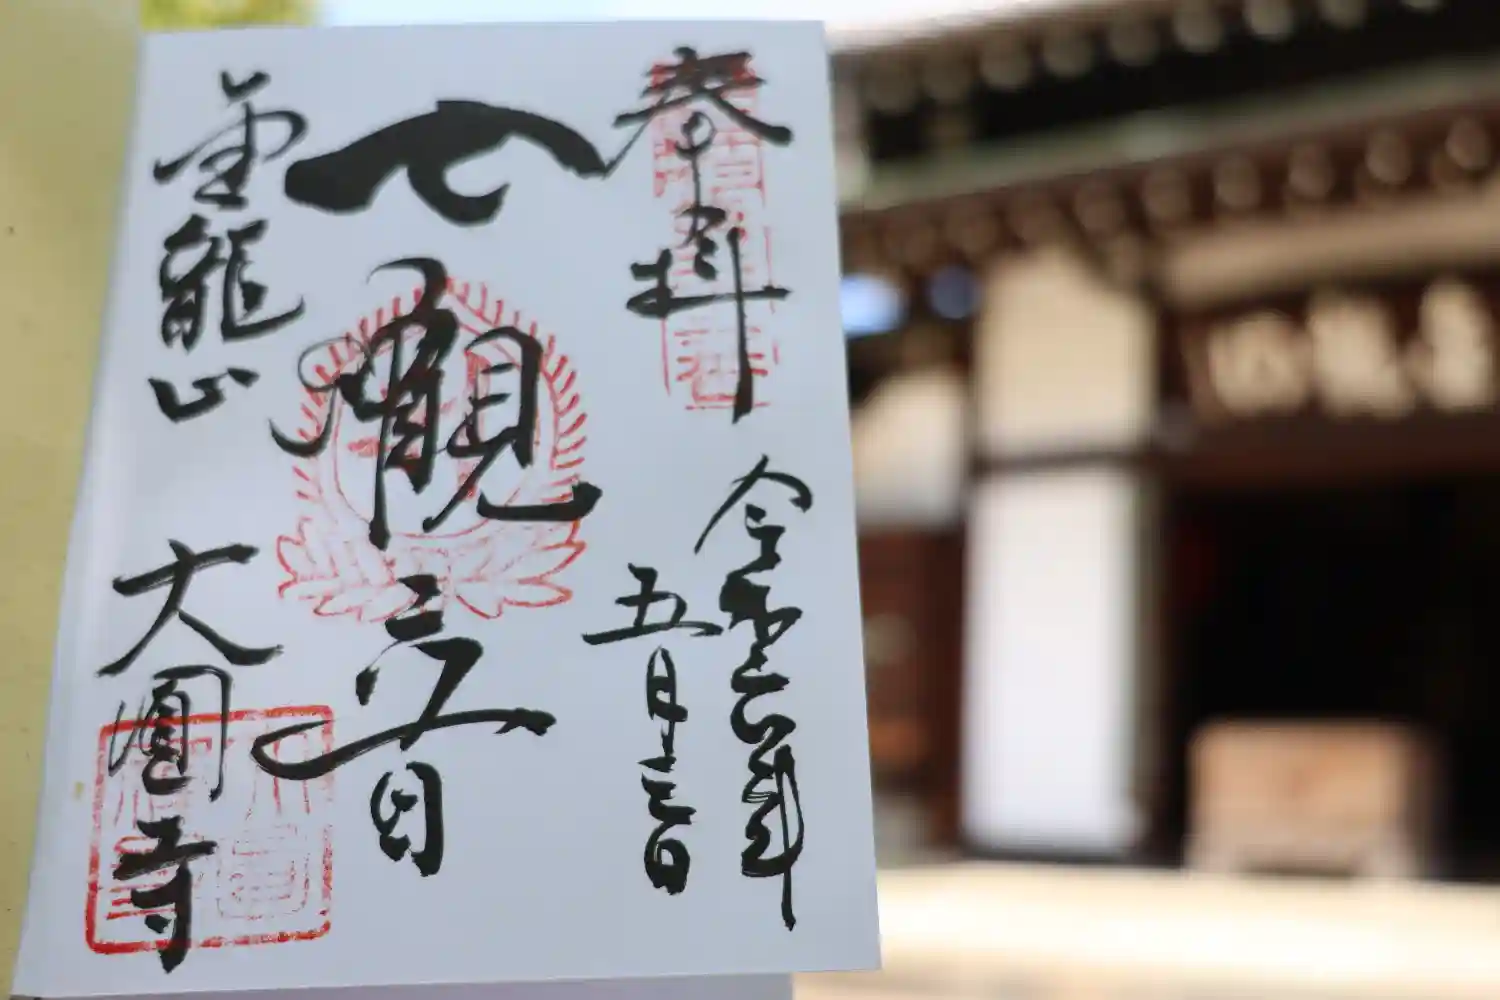 奉拝
令和六年
五月三日
七観音
龍山
大圓寺